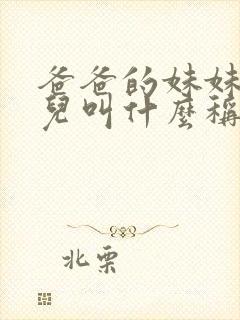 爸爸的妹妹
兒叫什麼稱
北栗